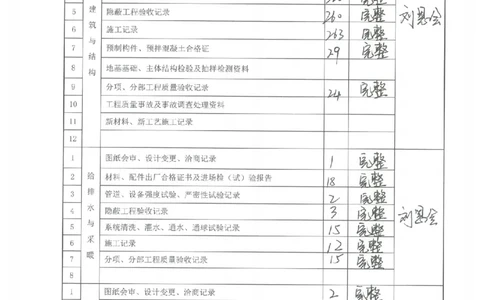 建筑与结构
5 隐蔽工程验收记录 260 完整 刘恩会
6 施工记录 263 完整
7 预制构件、预拌混凝土合格证 29 完整
8 地基基础、主体结构检验及抽样检测资料
9 分项、分部工程质量验收记录 24 完整
10 工程质量事故及事故调查处理资料
11 新材料、新工艺施工记录
12
给排水与采暖
1 图纸会审、设计变更、洽商记录 1 完整
2 材料、配件出厂合格证书及进场检(试)验报告 18 完整
3 管道、设备强度试验、严密性试验记录 2 完整
4 隐蔽工程验收记录 3 完整 刘恩会
5 系统清洗、灌水、通水、通球试验记录 15 完整
6 施工记录 12 完整
7 分项、分部工程质量验收记录 15 完整
8
1 图纸会审、设计变更、洽商记录 2 完整